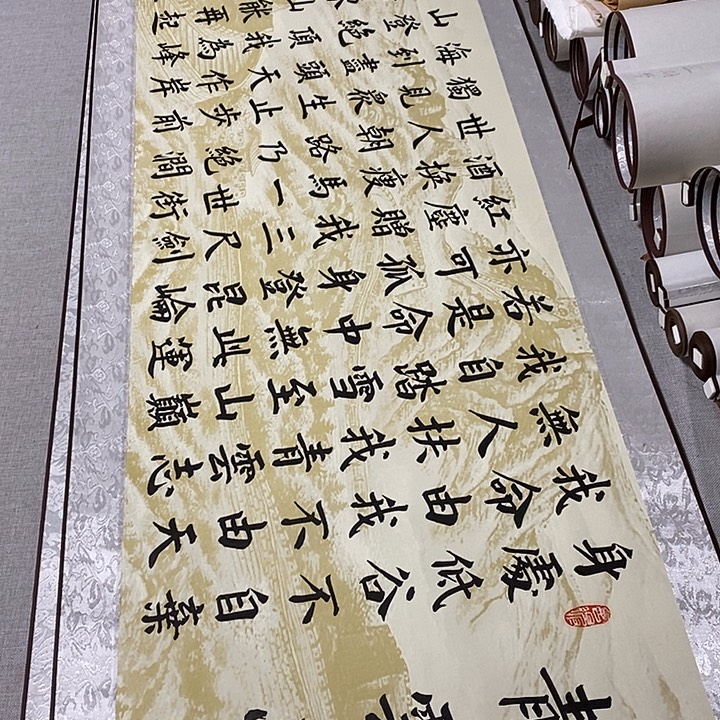 青雲
身處低谷不自棄
我命由我不由天
無人扶我青雲志
我自踏雪至山巔
若是命中無此運
亦可孤身登昆崙
紅塵贈我三尺劍
酒換瘦馬一世街
世人朝路乃絕澗
獨見眾生止步前
海到盡頭天作岸
山登絕頂我為峰
山能再起